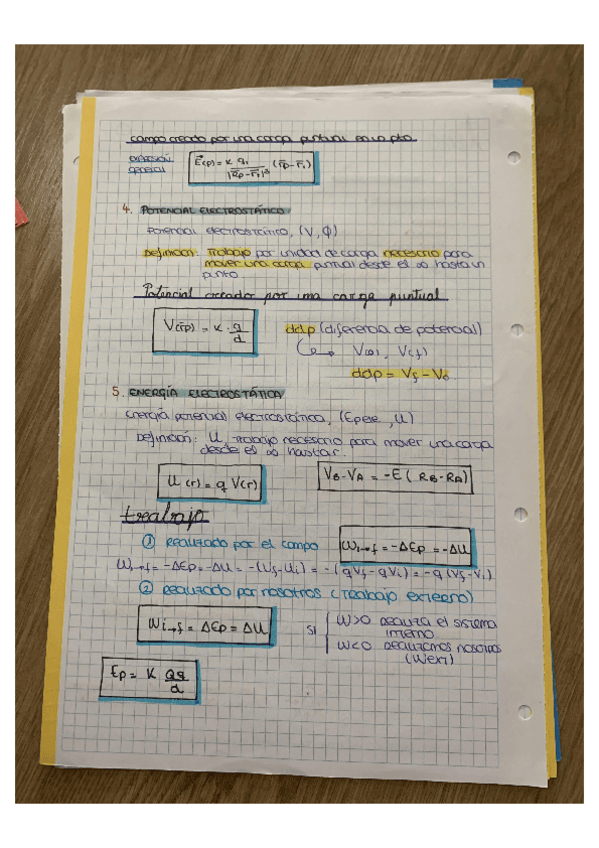 campo creado por una carga puntual en un pto
expresión general E⃗(p) = K q₁ / |r̄p - r̄₁|³ (r̄p - r̄₁)
4. POTENCIAL ELECTROSTÁTICO:
Potencial electrostático, (V, Φ)
Definición: Trabajo por unidad de carga necesario para
mover una carga puntual desde el ∞ hasta un
punto
Potencial creador por una carga puntual
V(r̄p) = K · q/d
ddp (diferencia de potencial)
V(o), V(f)
ddp = Vf - Vo
5. ENERGÍA ELECTROSTÁTICA
Energía potencial electrostático, (Epee, U)
Definición: U, trabajo necesario para mover una carga
desde el ∞ hasta r.
U(r) = q V(r)
VB - VA = -E (RB - RA)
trabajo
① Realizado por el campo
Wi→f = -ΔEp = -ΔU
Wi→f = -ΔEp = -ΔU = -(Uf - Ui) = -(qVf - qVi) = -q(Vf - Vi)
② Realizado por nosotros (trabajo externo)
Wi→f = ΔEp = ΔU
Si { W>0 Realiza el sistema
interno
W<0 Realizamos nosotros
(Wext)
Ep = K Qq/d